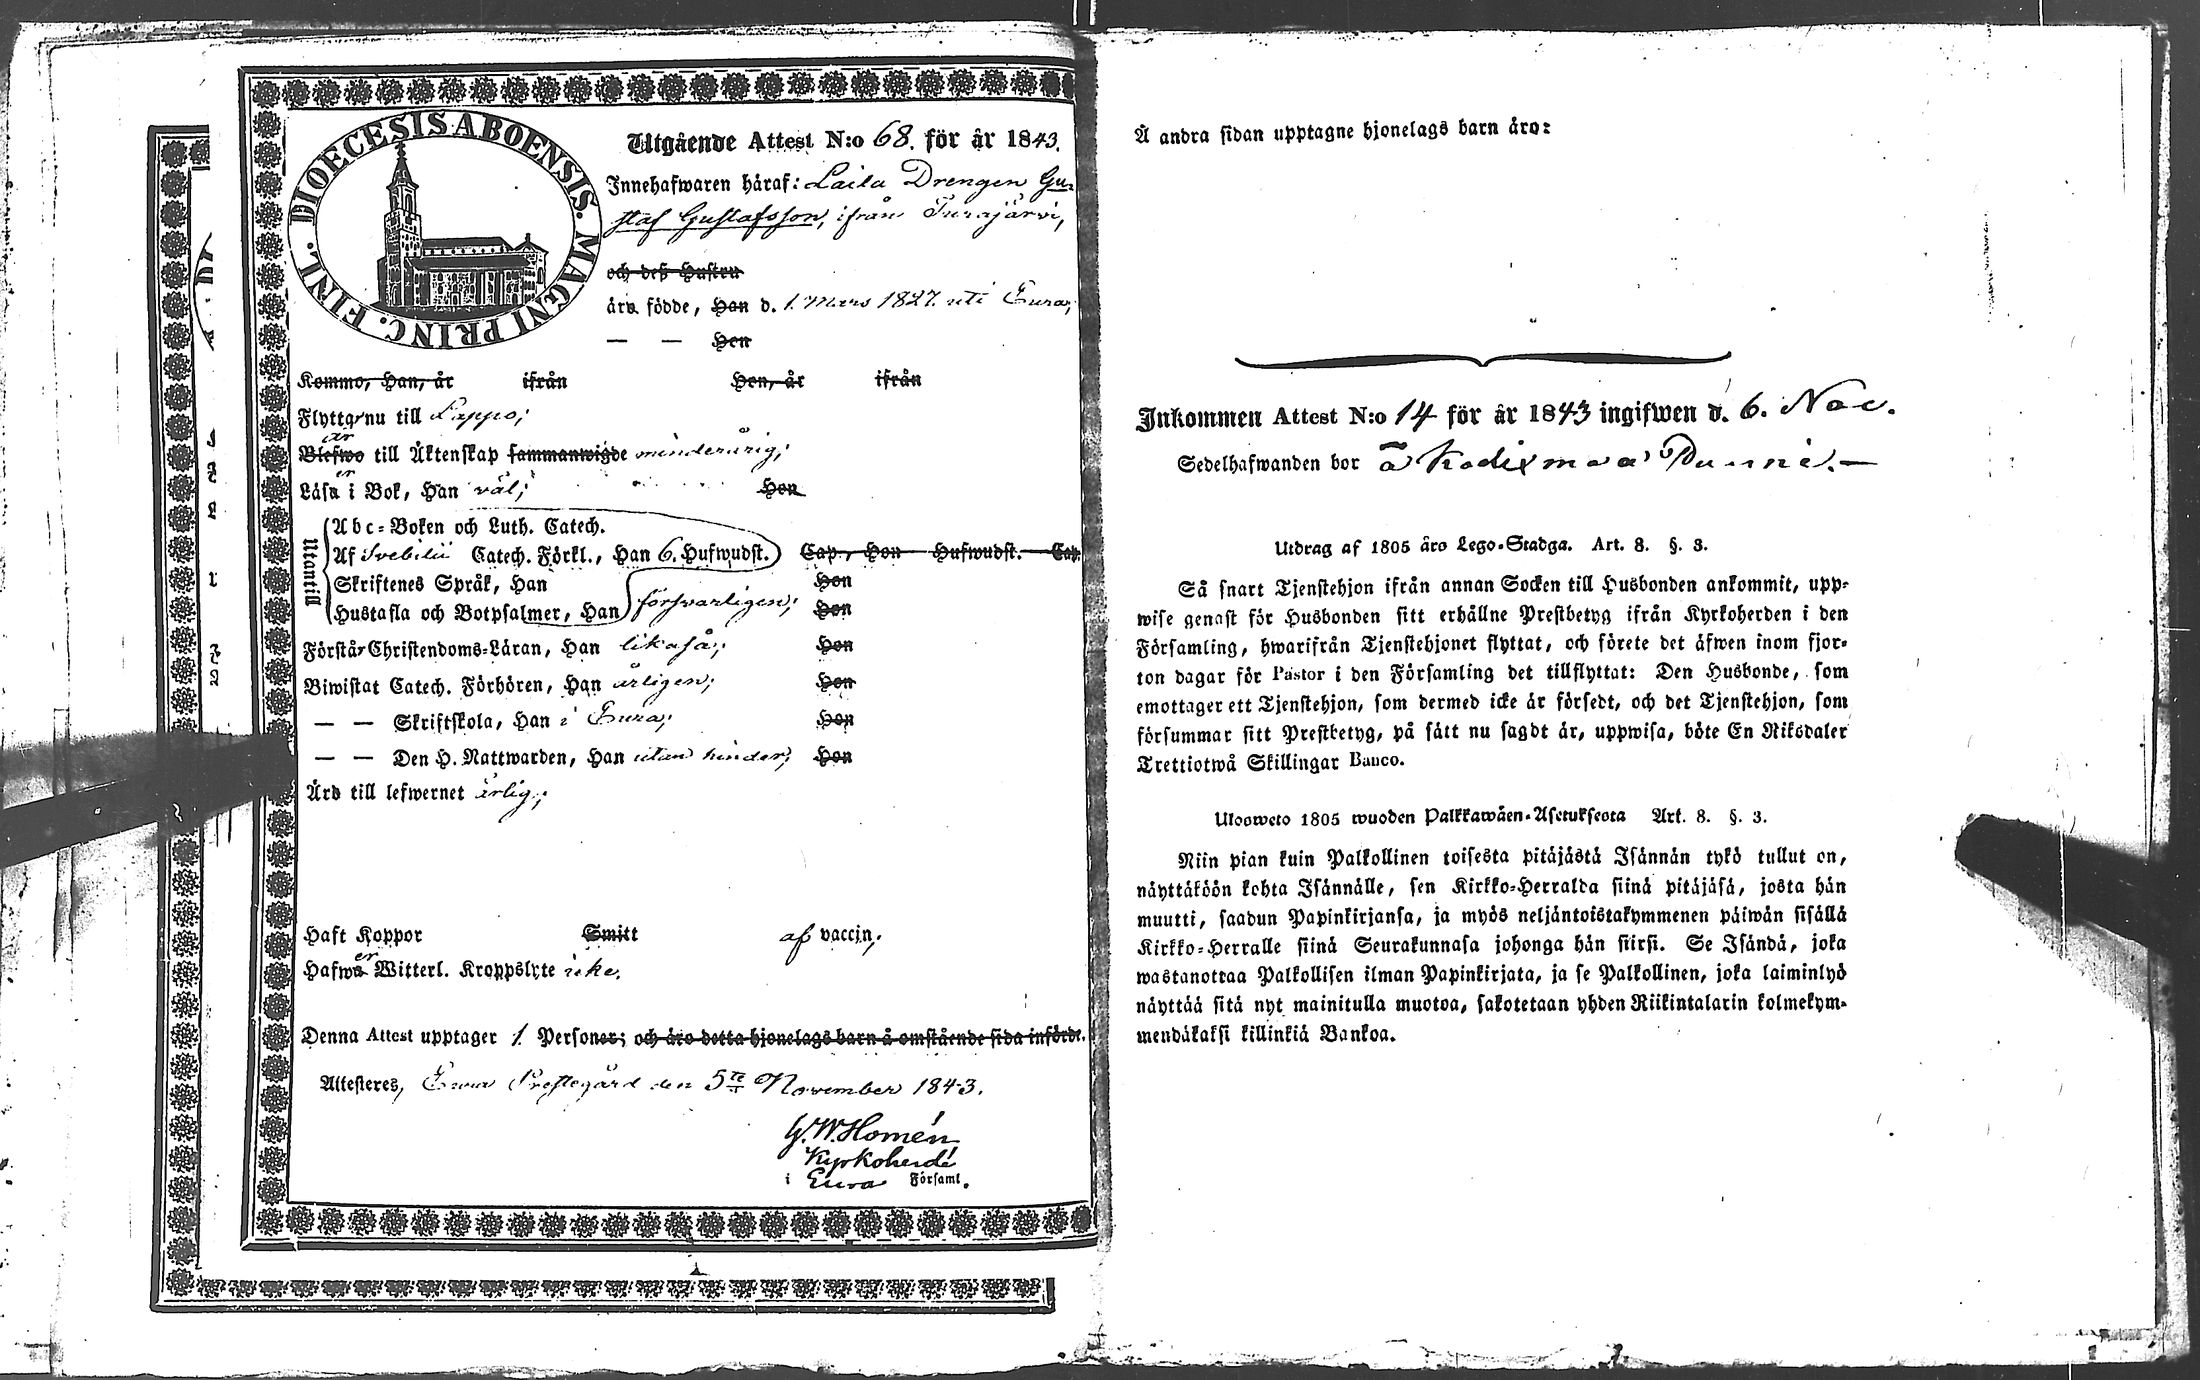 DIOECESIS ABOENSIS. MAGNI PRINC. FINL.
Utgående Attest N:o 68. för år 1843.
Innehafwaren häraf: Laila Drengen Gu-
staf Gustafsson, ifrån Turajärvi,
och deß Hustru
äro födde, Han d. 1. Mars 1827. uti Eura;
— — Hon
Kommo, Han, år ifrån Hon, år ifrån
Flyttar nu till Lappo;
är
Blefwo till Äktenskap sammanwigde minderårig;
er
Läsa i Bok, Han väl; Hon
Utantill
Abc-Boken och Luth. Catech.
Af Svebilii Catech. Förkl., Han 6. Hufwudst. Cap., Hon Hufwudst. Cap.
Skriftenes Språk, Han Hon
Hustafla och Botpsalmer, Han försvarligen; Hon
Förstår Christendoms-Läran, Han likaså; Hon
Biwistat Catech. Förhören, Han årligen; Hon
— — Skriftskola, Han i Eura; Hon
— — Den H. Nattwarden, Han utan hinder; Hon
Ärd till lefwernet ärlig;
Haft Koppor Smitt af vaccin;
er
Hafwa Witterl. Kroppslyte icke.
Denna Attest upptager 1. Personer; och äro detta hjonelags barn å omstående sida införde.
Attesteres, Eura Prestegård den 5te November 1843.
G. W. Homén
Kyrkoherde
i Eura Församl.
Å andra sidan upptagne hjonelags barn äro:
Inkommen Attest N:o 14 för år 1843 ingifwen d. 6. Nov.
Sedelhafwanden bor å Kadixmaa
Utdrag af 1805 års Lego-Stadga. Art. 8. §. 3.
Så snart Tjenstehjon ifrån annan Socken till Husbonden ankommit, upp-
wise genast för Husbonden sitt erhållne Prestbetyg ifrån Kyrkoherden i den
Församling, hwarifrån Tjenstehjonet flyttat, och förete det äfwen inom fjor-
ton dagar för Pastor i den Församling det tillflyttat: Den Husbonde, som
emottager ett Tjenstehjon, som dermed icke är försedt, och det Tjenstehjon, som
försummar sitt Prestbetyg, på sätt nu sagdt är, uppwisa, böte En Riksdaler
Trettiotwå Skillingar Banco.
Ulosweto 1805 wuoden Palkkawäen-Asetuksesta Art. 8. §. 3.
Niin pian kuin Palkollinen toisesta pitäjästä Isännän tykö tullut on,
näyttäköön kohta Isännälle, sen Kirkko-Herralda siinä pitäjäsä, josta hän
muutti, saadun Papinkirjansa, ja myös neljäntoistakymmenen päiwän sisällä
Kirkko-Herralle siinä Seurakunnasa johonga hän siirsi. Se Isändä, joka
wastanottaa Palkollisen ilman Papinkirjata, ja se Palkollinen, joka laiminlyö
näyttää sitä nyt mainitulla muotoa, sakotetaan yhden Riikintalarin kolmekym-
mendäkaksi killinkiä Bankoa.